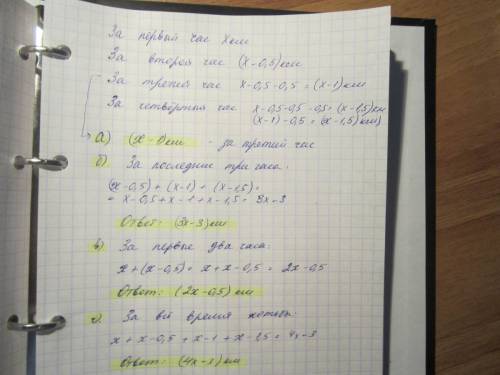 За первый час х км
За второй час (х-0,5) км
За третий час х-0,5-0,5 = (х-1) км
За четвёртый час х-0,5-0,5-0,5= (х-1,5) км
(х-1)-0,5 = (х-1,5) км)
а) (х-1) км - за третий час
б) За последние три часа:
(х-0,5) + (х-1) + (х-1,5)=
= х-0,5+х-1+х-1,5= 3х-3
Ответ: (3х-3) км
в) За первые два часа:
х+(х-0,5)= х+х-0,5= 2х-0,5
Ответ: (2х-0,5) км
г) За всё время
х+х-0,5+х-1+х-1,5= 4х-3
Ответ: (4х-3) км